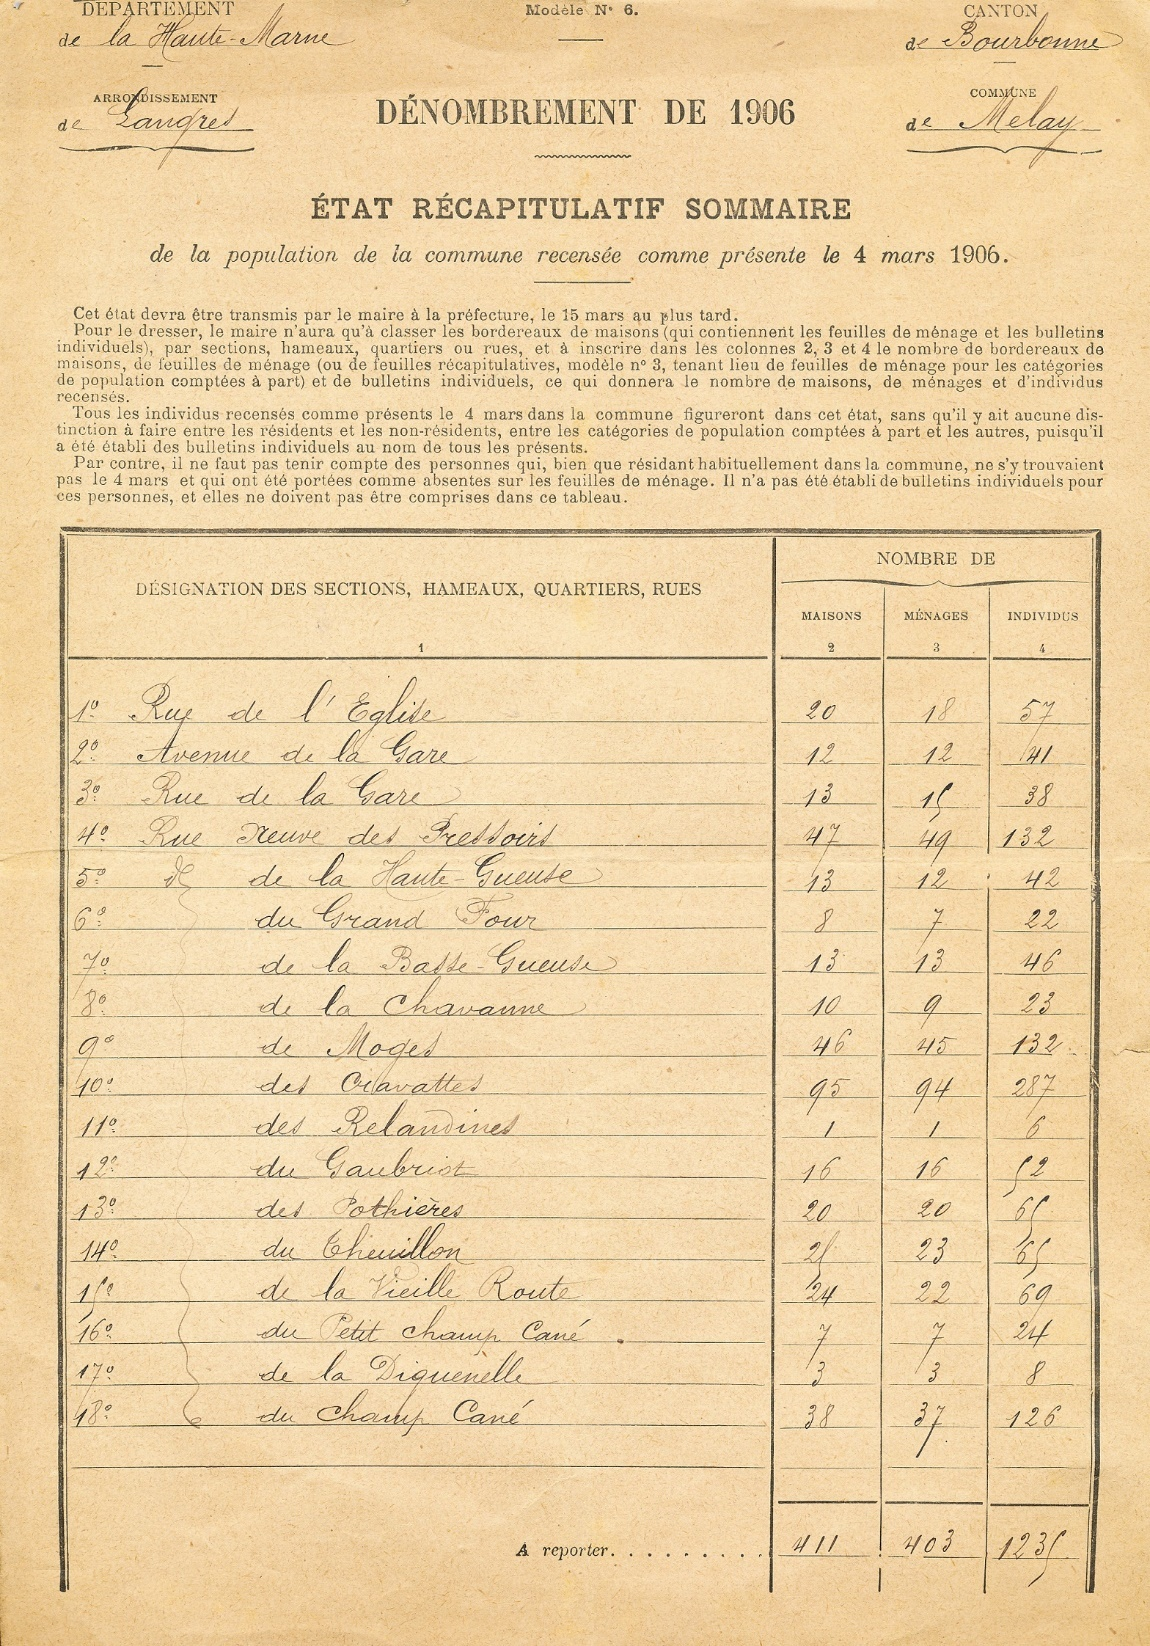 DÉPARTEMENT
de la Haute-Marne
ARRONDISSEMENT
de Langres
Modèle N° 6.
CANTON
de Bourbonne
COMMUNE
de Melay
DÉNOMBREMENT DE 1906
ÉTAT RÉCAPITULATIF SOMMAIRE
de la population de la commune recensée comme présente le 4 mars 1906.
Cet état devra être transmis par le maire à la préfecture, le 15 mars au plus tard.
Pour le dresser, le maire n'aura qu'à classer les bordereaux de maisons (qui contiennent les feuilles de ménage et les bulletins
individuels), par sections, hameaux, quartiers ou rues, et à inscrire dans les colonnes 2, 3 et 4 le nombre de bordereaux de
maisons, de feuilles de ménage (ou de feuilles récapitulatives, modèle n° 3, tenant lieu de feuilles de ménage pour les catégories
de population comptées à part) et de bulletins individuels, ce qui donnera le nombre de maisons, de ménages et d'individus
recensés.
Tous les individus recensés comme présents le 4 mars dans la commune figureront dans cet état, sans qu'il y ait aucune dis-
tinction à faire entre les résidents et les non-résidents, entre les catégories de population comptées à part et les autres, puisqu'il
a été établi des bulletins individuels au nom de tous les présents.
Par contre, il ne faut pas tenir compte des personnes qui, bien que résidant habituellement dans la commune, ne s'y trouvaient
pas le 4 mars et qui ont été portées comme absentes sur les feuilles de ménage. Il n'a pas été établi de bulletins individuels pour
ces personnes, et elles ne doivent pas être comprises dans ce tableau.
DÉSIGNATION DES SECTIONS, HAMEAUX, QUARTIERS, RUES
NOMBRE DE
MAISONS MÉNAGES INDIVIDUS
1 2 3 4
1° Rue de l'Eglise 20 18 57
2° Avenue de la Gare 12 12 41
3° Rue de la Gare 13 15 38
4° Rue Neuve des Pressoirs 47 49 132
5° d° de la Haute-Gueuse 13 12 42
6° du Grand Four 8 7 22
7° de la Basse-Gueuse 13 13 46
8° de la Chavanne 10 9 23
9° de Moges 46 45 132
10° des Cravattes 95 94 287
11° des Relandines 1 1 6
12° du Gaubriot 16 16 52
13° des Pothières 20 20 65
14° du Cheuillon 25 23 65
15° de la Vieille Route 24 22 69
16° du Petit champ Cané 7 7 24
17° de la Diguenelle 3 3 8
18° du champ Cané 38 37 126
A reporter. . . . . . . . . . 411 403 1235